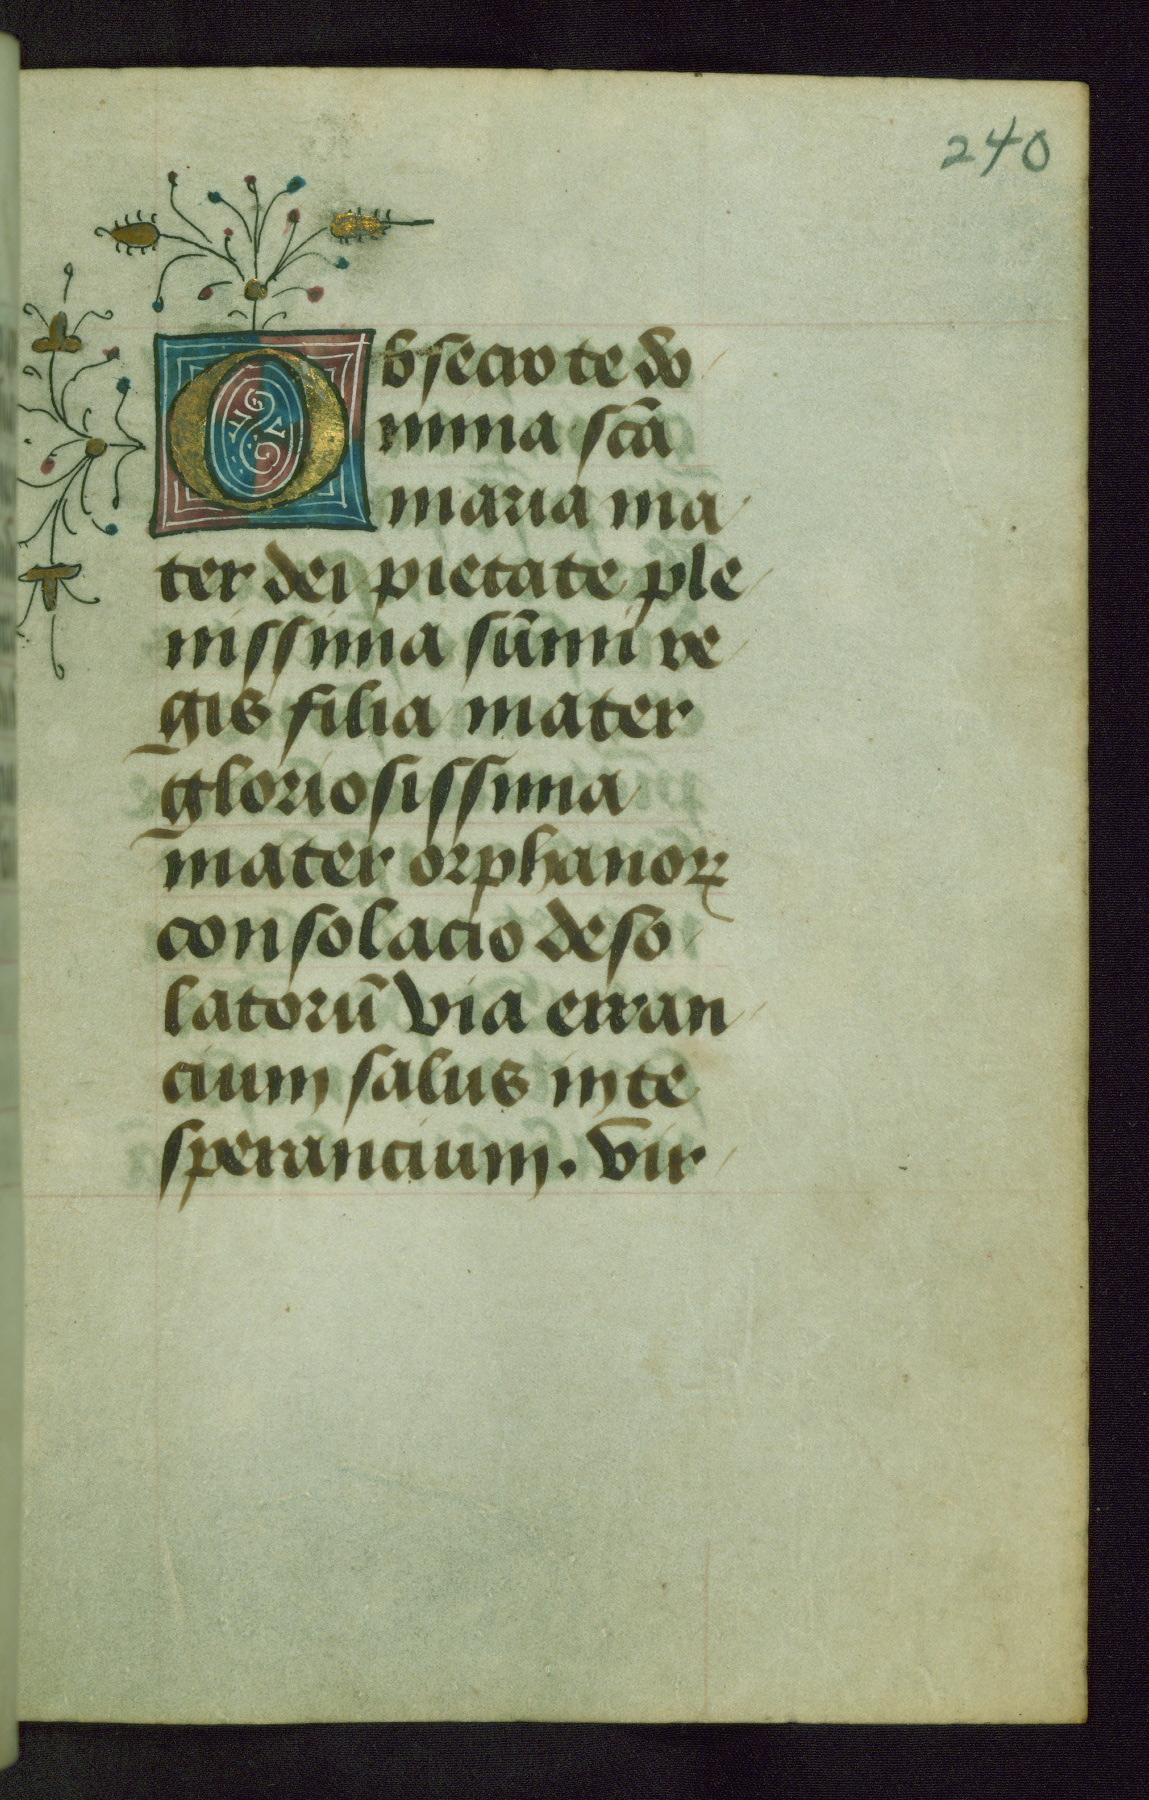 240
Obsecro te do
mina scā
maria ma
ter dei pietate ple
nissima sūmi re
gis filia mater
gloriosissima
mater orphanoꝝ
consolacio deso
latorū via erran
cium salus in te
sperancium. Vir